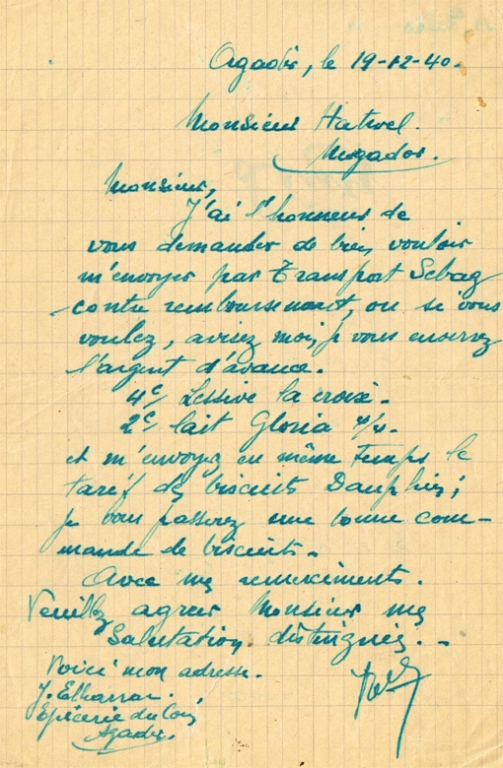 Agadir, le 19-12-40.
Monsieur Hatwel.
Mogador.
Monsieur,
J'ai l'honneur de
vous demander de bien vouloir
m'envoyer par Transport Sebag
contre remboursement, ou si vous
voulez, avisez moi, je vous enverrez
l'argent d'avance.
4c/ Lessive la croix.
2c/ lait Gloria
et m'envoyez en même temps le
tarif des biscuits Dauphin;
je vous passerez une bonne com-
mande de biscuits.
Avec mes remerciments.
Veuillez agreer Monsieur mes
Salutation distinguées.
Voici mon adresse.
J. Elharrar.
Epicerie du Coin
Agadir.